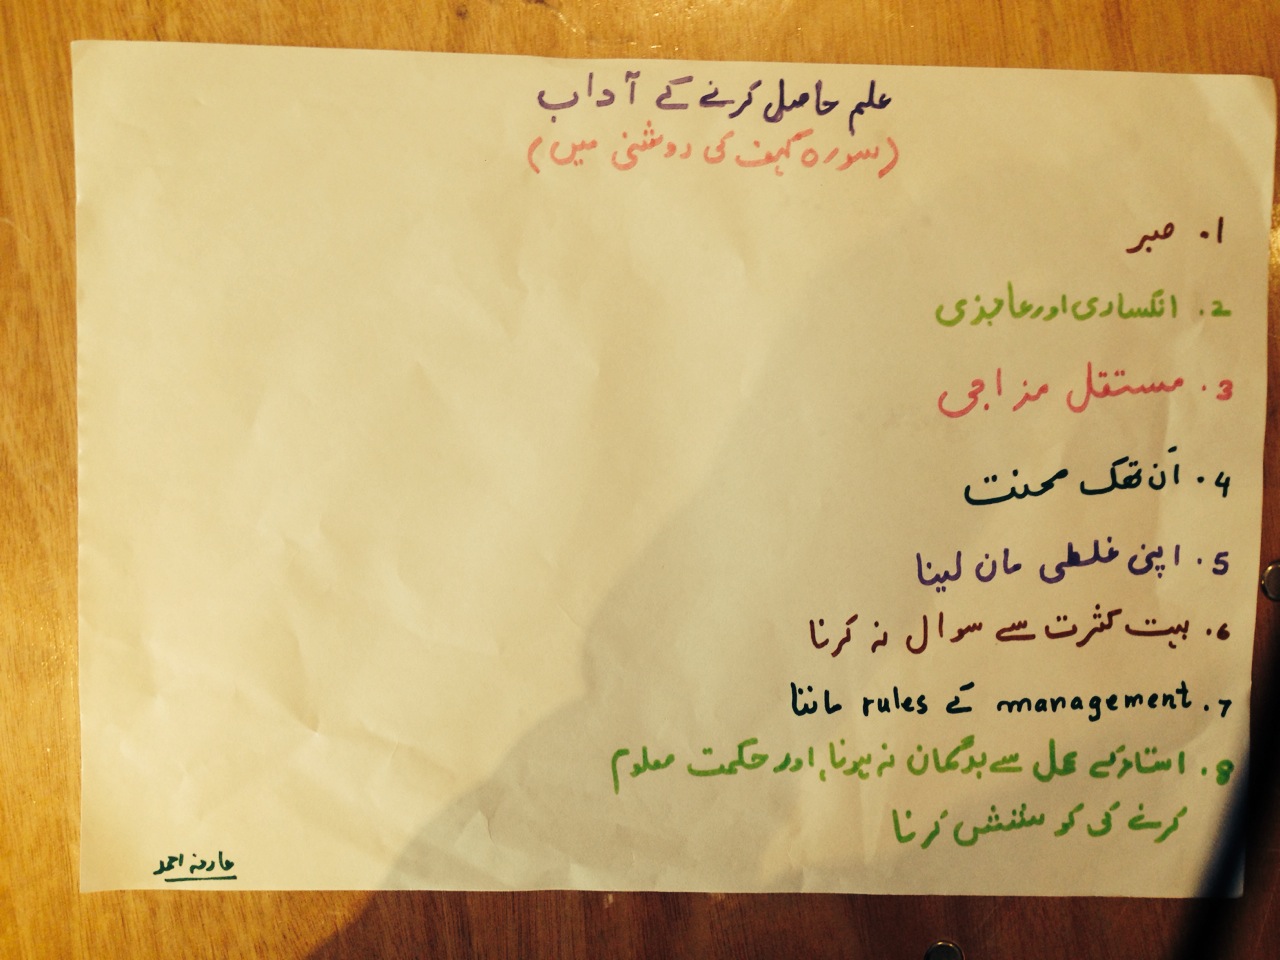 علم حاصل کرنے کے آداب
(سورہ کہف کی روشنی میں)
1. صبر
2. انکساری اور عاجزی
3. مستقل مزاجی
4. اَن تھک محنت
5. اپنی غلطی مان لینا
6. بہت کثرت سے سوال نہ کرنا
7. management کے rules ماننا
8. استاد کے عمل سے بدگمان نہ ہونا، اور حکمت معلوم
کرنے کی کوشش کرنا
احمد